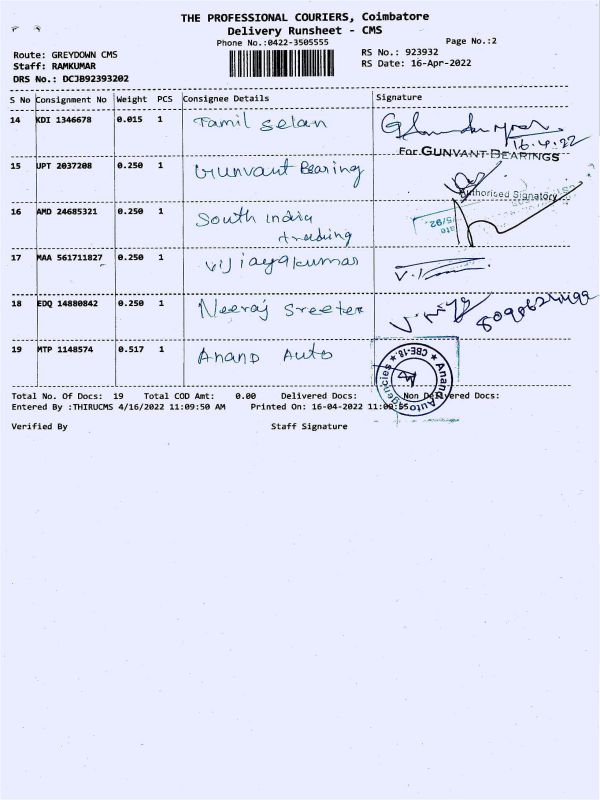 THE PROFESSIONAL COURIERS, Coimbatore
Delivery Runsheet - CMS
Phone No.:0422-3505555
Page No.:2
Route: GREYDOWN CMS
RS No.: 923932
Staff: RAMKUMAR
RS Date: 16-Apr-2022
DRS No.: DCJB92393202
S No Consignment No Weight PCS Consignee Details Signature
14 KDI 1346678 0.015 1 Tamil Selan
16.4.22
For GUNVANT BEARINGS
15 UPT 2037208 0.250 1 Gunvant Bearing
Authorised Signatory
16 AMD 24685321 0.250 1 South India
trading
17 MAA 561711827 0.250 1 Vijayakumar
18 EDQ 14880842 0.250 1 Neeraj Sreeter
19 MTP 1148574 0.517 1 Anand Auto
Anand Auto Agencies * CBE-18 *
Total No. Of Docs: 19 Total COD Amt: 0.00 Delivered Docs: Non Delivered Docs:
Entered By :THIRUCMS 4/16/2022 11:09:50 AM Printed On: 16-04-2022 11:09:55
Verified By Staff Signature